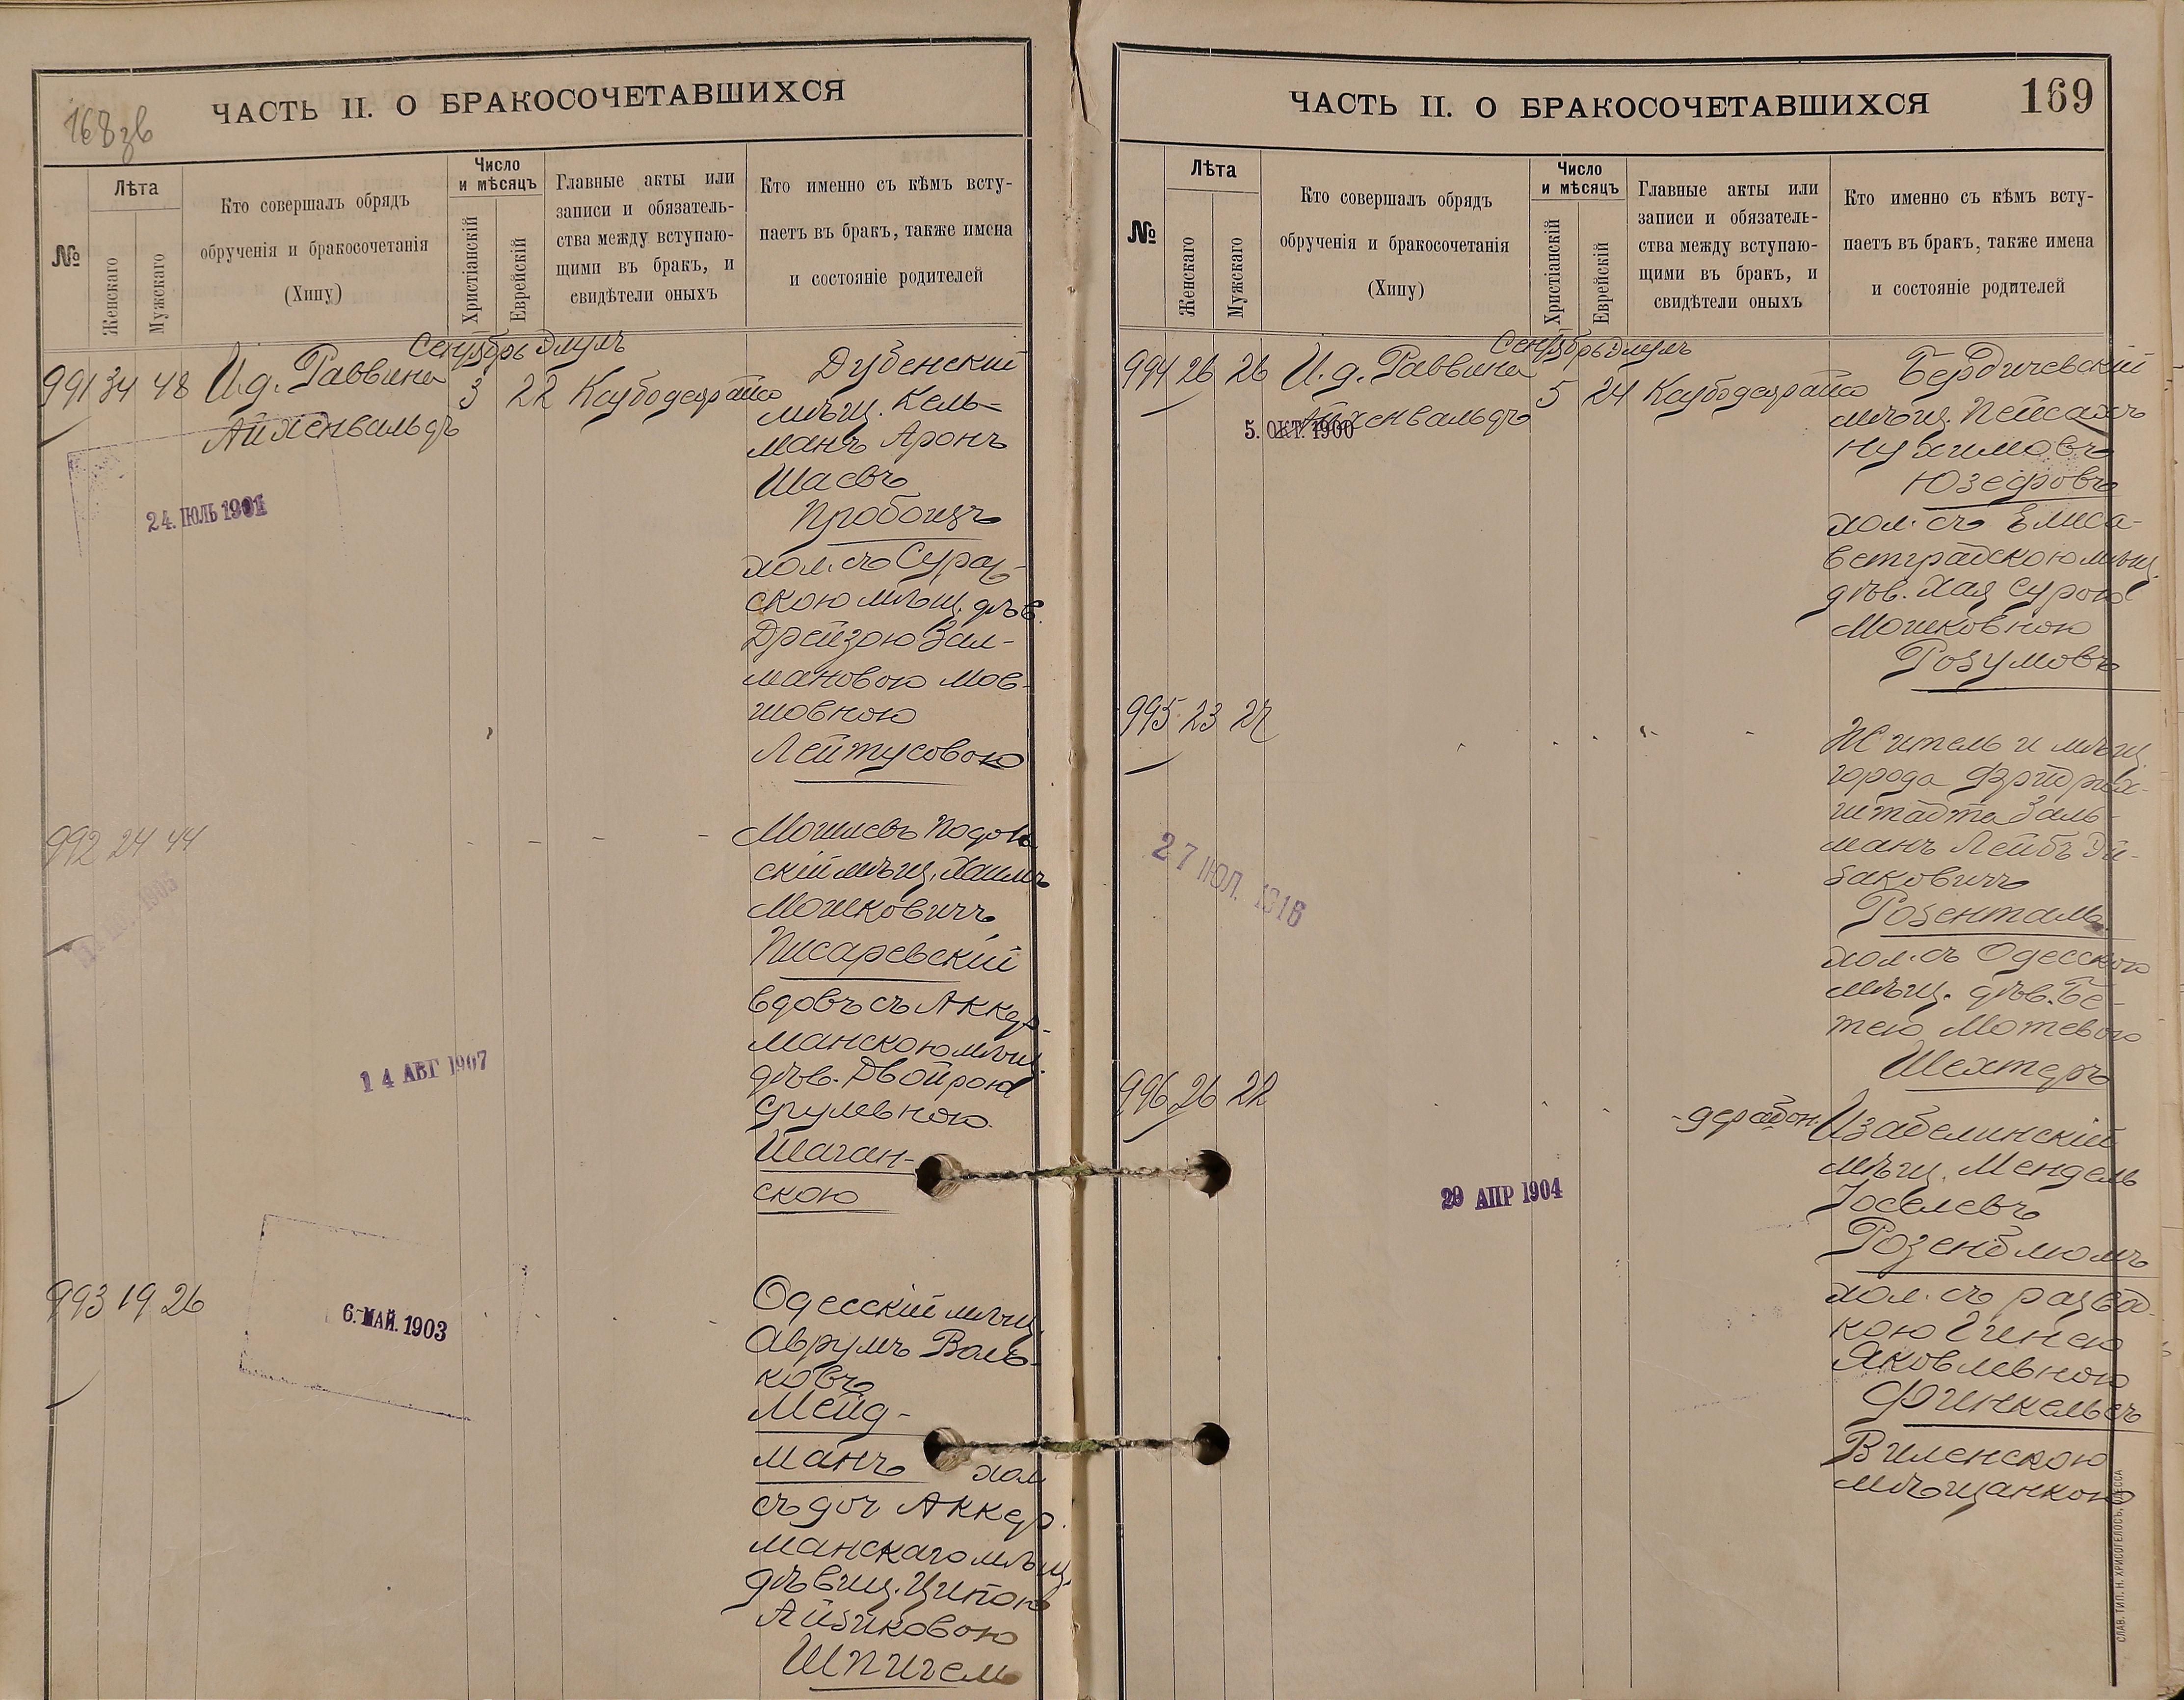 168 зв
ЧАСТЬ II. О БРАКОСОЧЕТАВШИХСЯ
№
Лѣта
Женскаго
Мужскаго
Кто совершалъ обрядъ
обрученія и бракосочетанія
(Хипу)
Число
и мѣсяцъ
Христіанскій
Еврейскій
Главные акты или
записи и обязатель-
ства между вступаю-
щими въ бракъ, и
свидѣтели оныхъ
Кто именно съ кѣмъ всту-
паетъ въ бракъ, также имена
и состояніе родителей
Сентябрь Элулъ
991 34 48 И.д. Раввина 3 22
Айхенвальдъ
24. ІЮЛЬ 1901
Дубенскій
мѣщ. Кель-
манъ Аронъ
Шаевъ
Пробоищъ
хол. съ Сураж-
скою мѣщ. дѣв.
Дрейзою Зал-
мановою Мов-
шовною
Лейтусовою
992 24 44
1905
14 АВГ 1907
Могилевъ Подоль
скій мѣщ. Хаимъ
Мошковичъ
Писаревскій
вдовъ съ Аккер-
манскою мѣщ.
дѣв. Двойрою
Срулевною
Шаган-
скою
993 19 26
6. МАЙ. 1903
Одесскій мѣщ.
Аврумъ Воль-
ковъ
Мейд-
манъ хол
съ доч Аккер
манскаго мѣщ.
дѣвиц. Ципою
Айзиковою
Шпигель
ЧАСТЬ II. О БРАКОСОЧЕТАВШИХСЯ
169
№
Лѣта
Женскаго
Мужскаго
Кто совершалъ обрядъ
обрученія и бракосочетанія
(Хипу)
Число
и мѣсяцъ
Христіанскій
Еврейскій
Главные акты или
записи и обязатель-
ства между вступаю-
щими въ бракъ, и
свидѣтели оныхъ
Кто именно съ кѣмъ всту-
паетъ въ бракъ, также имена
и состояніе родителей
Сентябрь Элулъ
994 26 26 И.д. Раввина 5 24
Айхенвальдъ
5. ОКТ. 1900
Бердичевскій
мѣщ. Пейсахъ
Нухимовъ
Юзефовъ
хол. съ Елиса-
ветградскою мѣщ.
дѣв. Хая Сурою
Мошковною
Розумовъ
995 23 27
27 ІЮЛ. 1916
Житель и мѣщ.
города Фридрих-
штадта Заль-
манъ Лейбъ Эй-
заковичъ
Розенталь
хол. съ Одесскою
мѣщ. дѣв. Бе-
тею Мотевою
Шехтеръ
996 26 22
29 АПР 1904
Изабелинскій
мѣщ. Мендель
Іоселевъ
Розенблюмъ
хол. съ развод-
кою Гинею
Яковлевною
Финкель съ
Виленскою
мѣщанкою
СЛАВ. ТИП. Н. ХРИСОГЕЛОСЪ, ОДЕССА